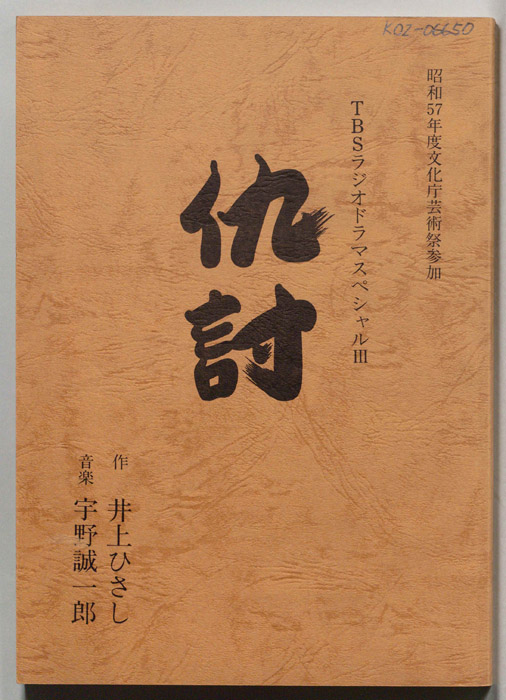 K02-06650
昭和57年度文化庁芸術祭参加
TBSラジオドラマスペシャルIII
仇討
作 井上ひさし
音楽 宇野誠一郎